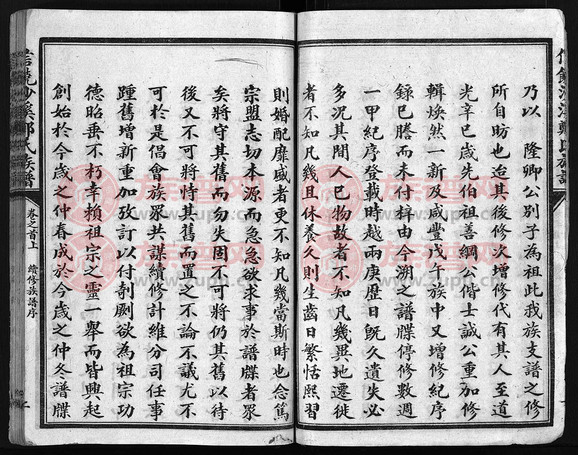 乃以 隆卿公別子為祖此我族支譜之修
所自昉也洎其後修次增修代有其人至道
光辛巳歲先伯祖善綱公偕士誠公重加修
輯煥然一新及咸豐戊午族中又增修紀序
錄已騰而未付梓由今溯之譜牒停修數週
一甲紀序登載時越兩庚歷日既久遺失必
多況其間人已物故者不知凡幾異地遷徙
者不知凡幾且休養久則生齒日繁恬熙習
則婚配靡戚者更不知凡幾當斯時也念篤
宗盟志切本源而急急欲求事於譜牒者眾
矣將守其舊而勿失固不可將仍其舊以待
後又不可將恃其舊而置之不論不議尤不
可於是倡會族眾共謀續修計維分司任事
踵舊增新重加攷訂以付剞劂欲為祖宗功
德昭垂不朽幸賴祖宗之靈一舉而皆興起
創始於今歲之仲春成於今歲之仲冬譜牒
信饒沙溪鄭氏族譜
卷之首上 續修族譜序